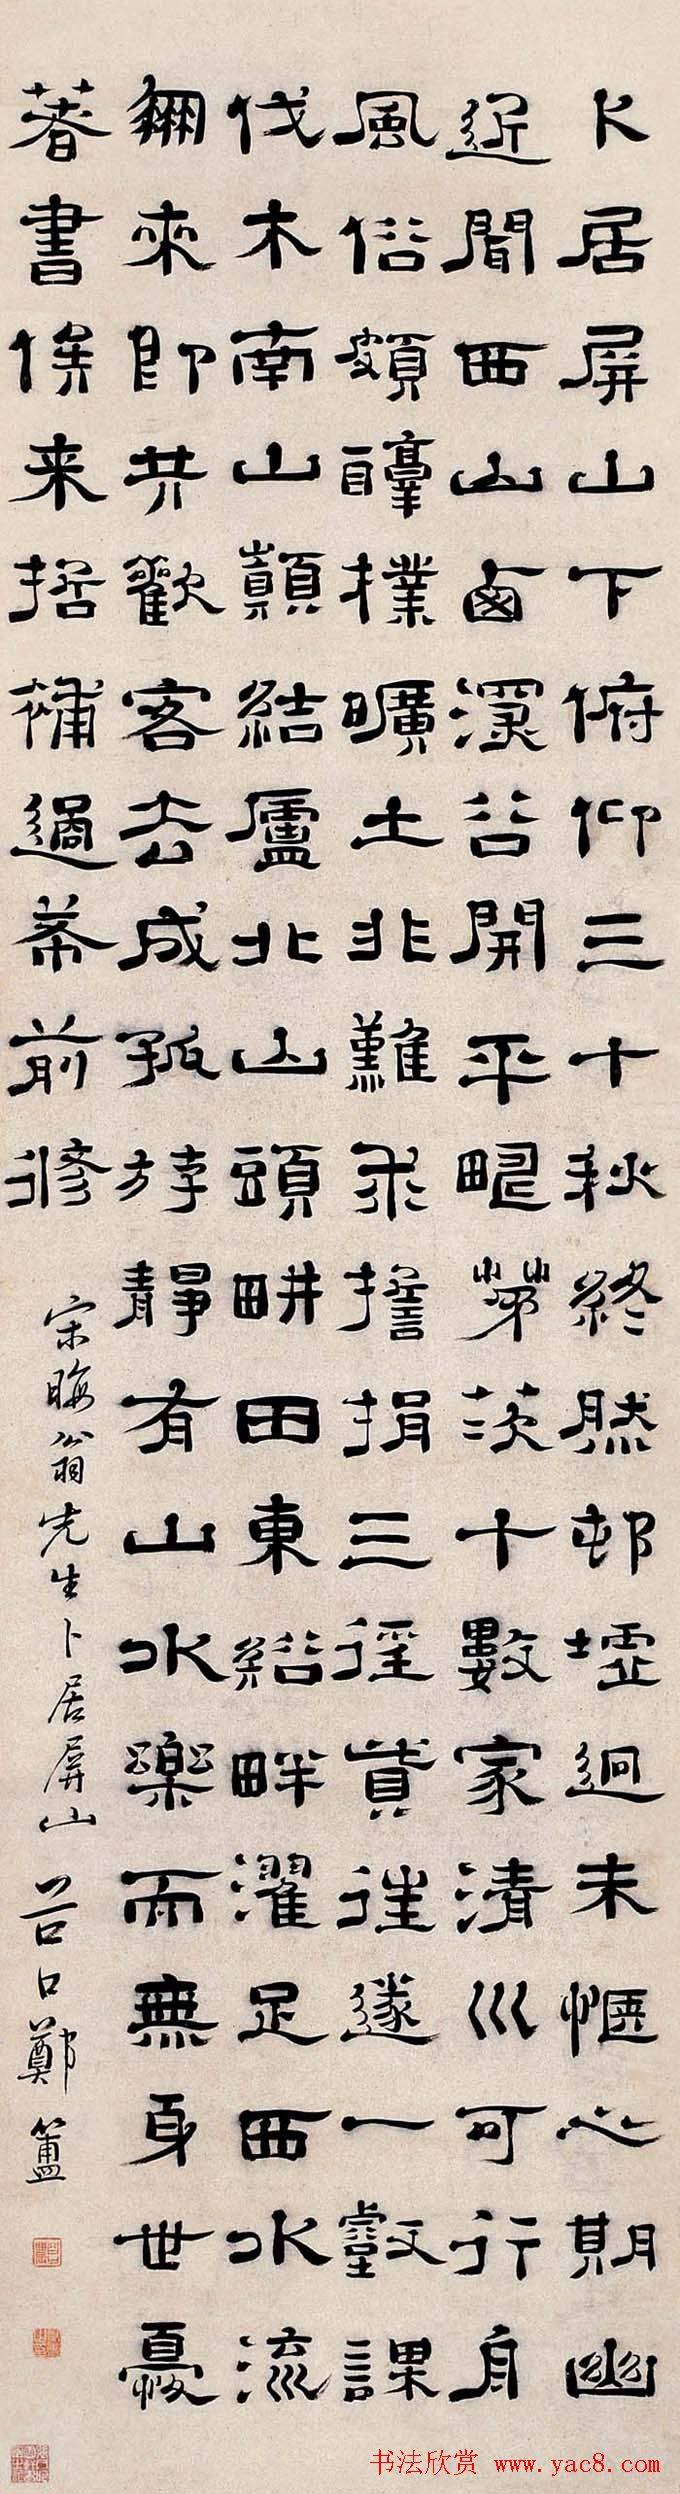 卜居屏山下俯仰三十秋終然邨墟迥未愜心期幽
近聞西山鹵深谷開平疇茅茨十數家清川可行舟
風俗頗醇樸曠土非難求誓捐三徑貲往遂一壑謀
伐木南山巔結廬北山頭畊田東谿畔濯足西水流
朋來即共歡客去成孤斿靜有山水樂而無身世憂
著書俟来哲補過希前修
宋晦翁先生卜居屏山 谷口鄭簠
书法欣赏 www.yac8.com